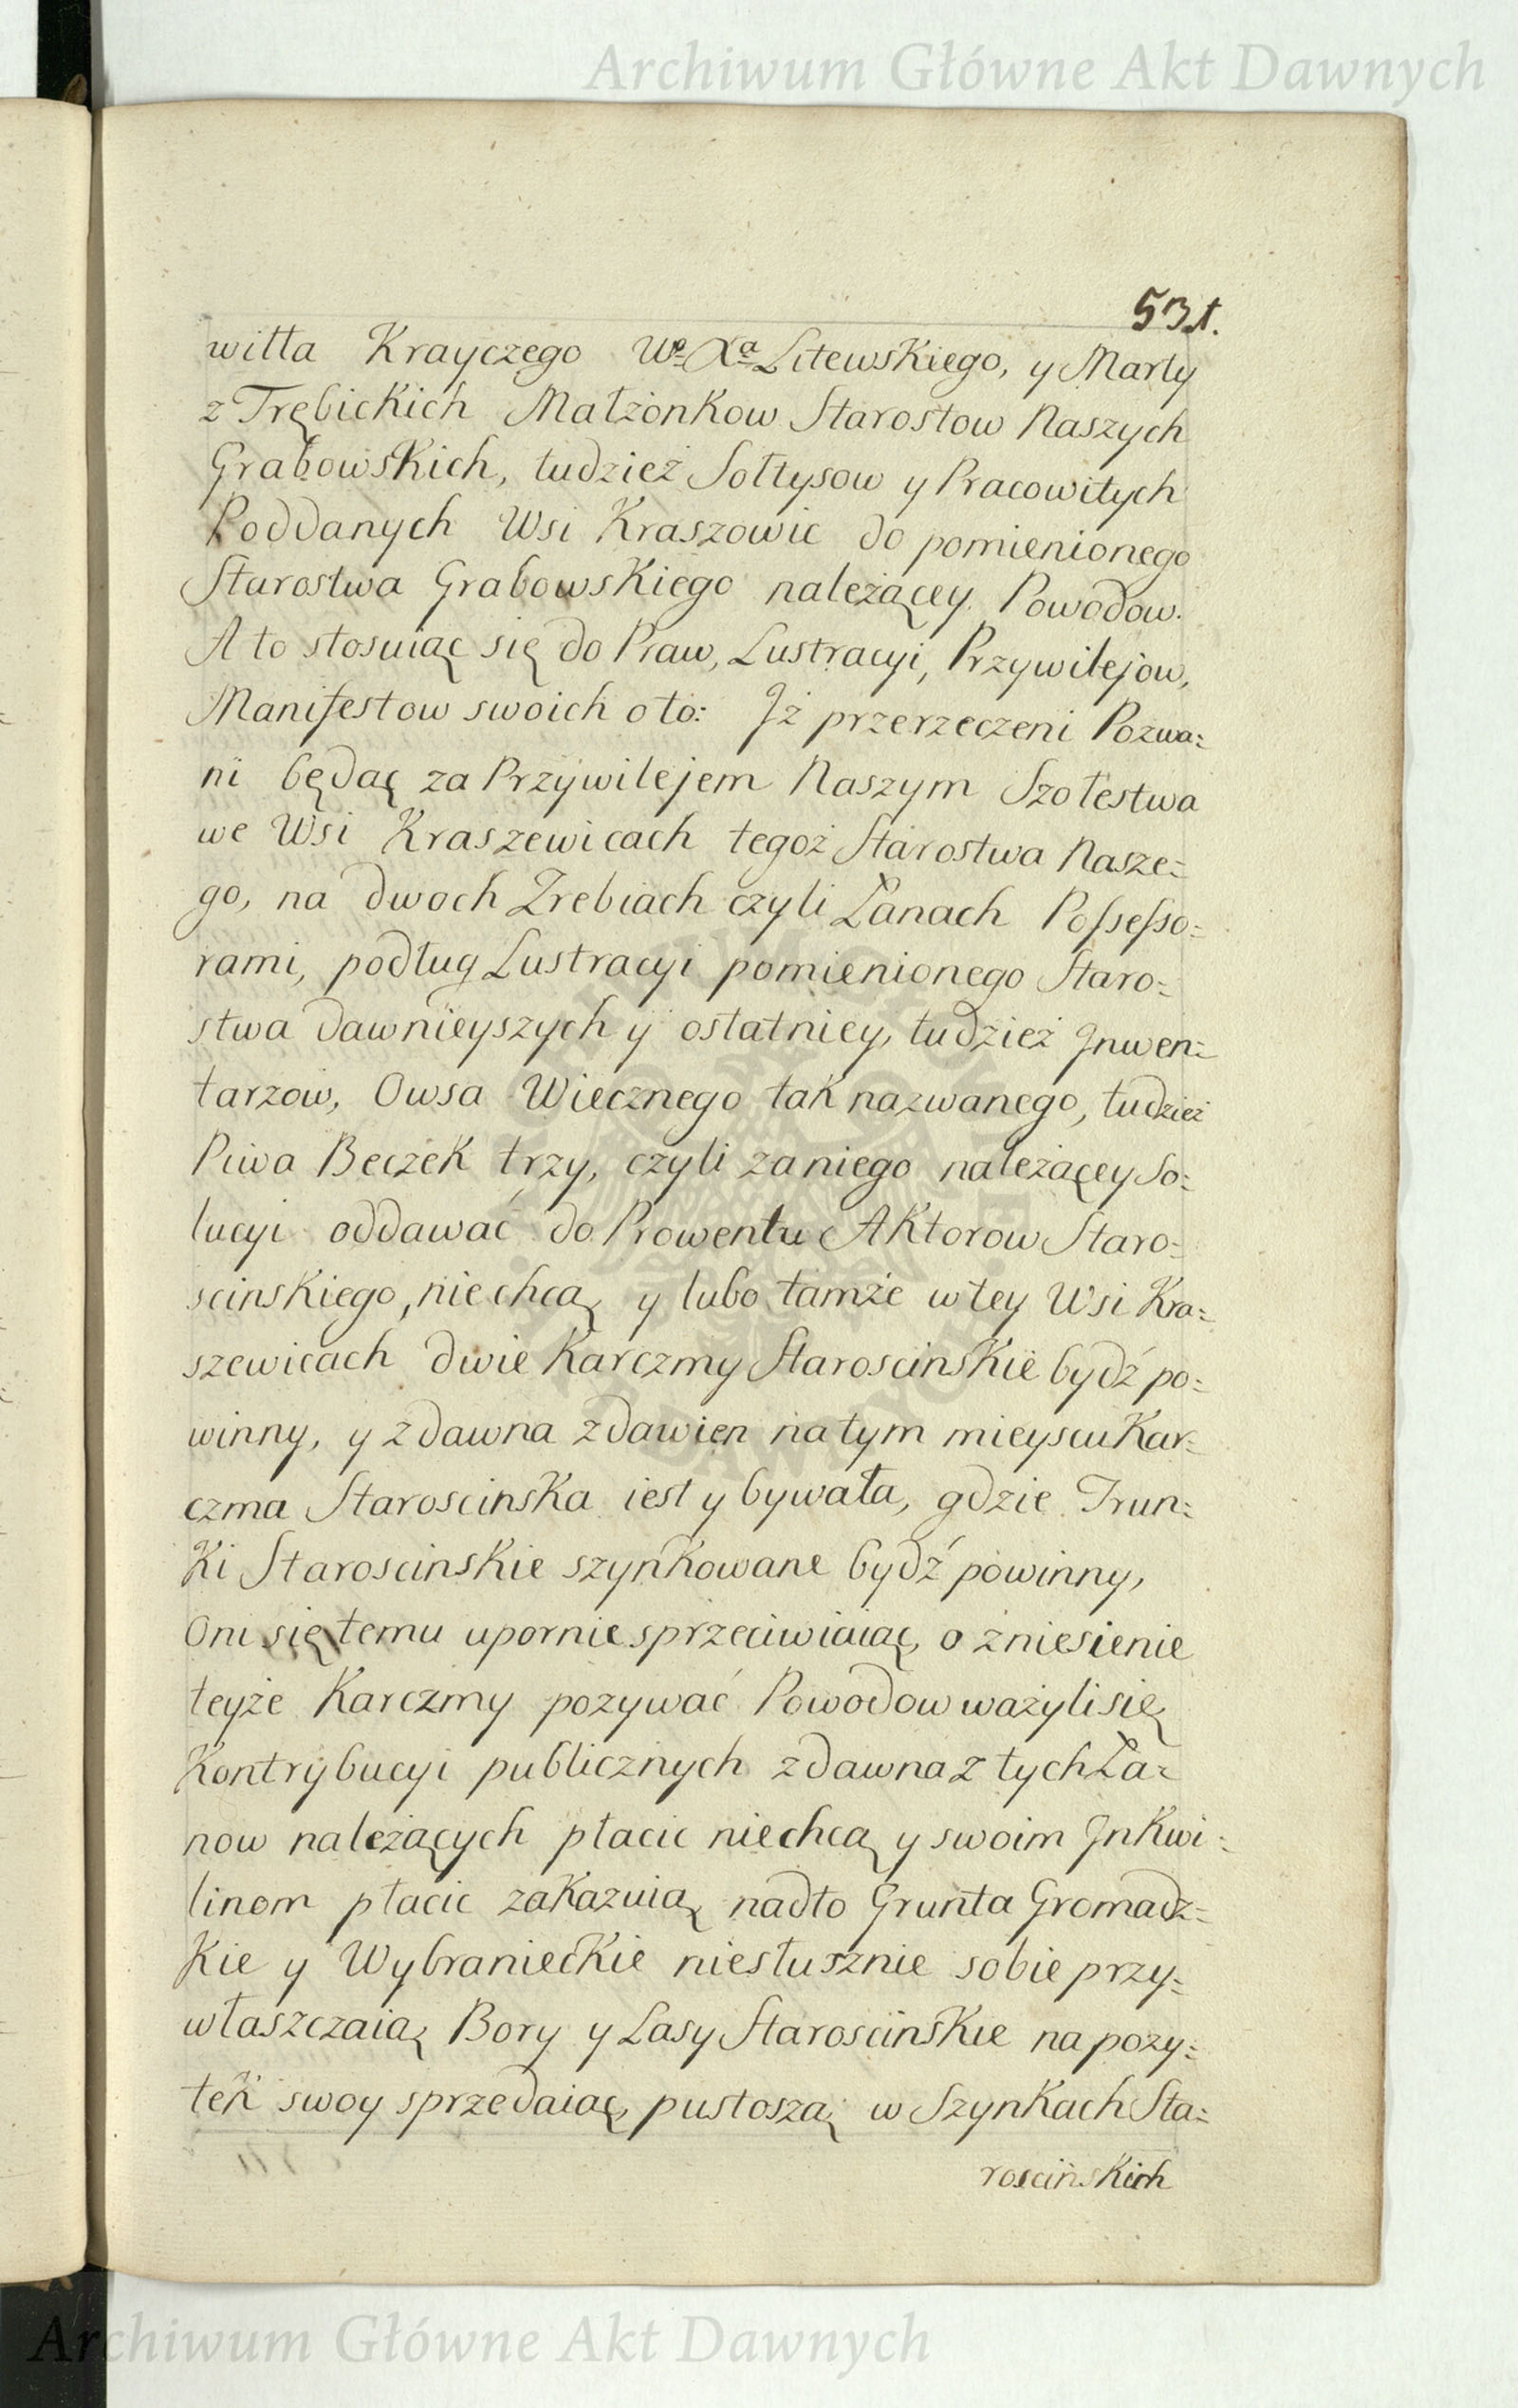 Archiwum Główne Akt Dawnych
531.
witta Krayczego Wº Xª Litewskiego, y Marty
z Trębickich Małżonkow Starostow Naszych
Grabowskich, tudzież Sołtysow y Pracowitych
Poddanych Wsi Kraszowic do pomienionego
Starostwa Grabowskiego należącey Powodow.
A to stosuiąc się do Praw, Lustracyi, Przywilejow,
Manifestow swoich o to: Jż przerzeczeni Pozwa=
ni będąc za Przywilejem Naszym Szołestwa
we Wsi Kraszewicach tegoż Starostwa Nasze=
go, na dwoch Zrebiach czyli Łanach Possesso=
rami, podług Lustracyi pomienionego Staro=
stwa dawnieyszych y ostatniey, tudzież Jnwen=
tarzow, Owsa Wiecznego tak nazwanego, tudzież
Piwa Beczek trzy, czyli za niego należącey So=
lucyi oddawać do Prowentu Aktorow Staro=
scinskiego, niechcą y lubo tamże w tey Wsi Kra=
szewicach dwie Karczmy Staroscinskie bydź po=
winny, y zdawna zdawien na tym mieyscu Kar=
czma Staroscinska iest y bywała, gdzie Trun=
ki Staroscinskie szynkowane bydź powinny,
Oni się temu upornie sprzeciwiaiąc, o zniesienie
teyże Karczmy pozywać Powodow ważyli się
Kontrybucyi publicznych zdawna z tych Ła=
now należących płacic niechcą y swoim Jnkwi=
linom płacic zakazuią nadto Grunta Gromadz=
kie y Wybranieckie niesłusznie sobie przy=
właszczaią Bory y Lasy Staroscinskie na pozy=
tek swoy sprzedaiąc, pustoszą w Szynkach Sta=
roscinskich
Archiwum Główne Akt Dawnych